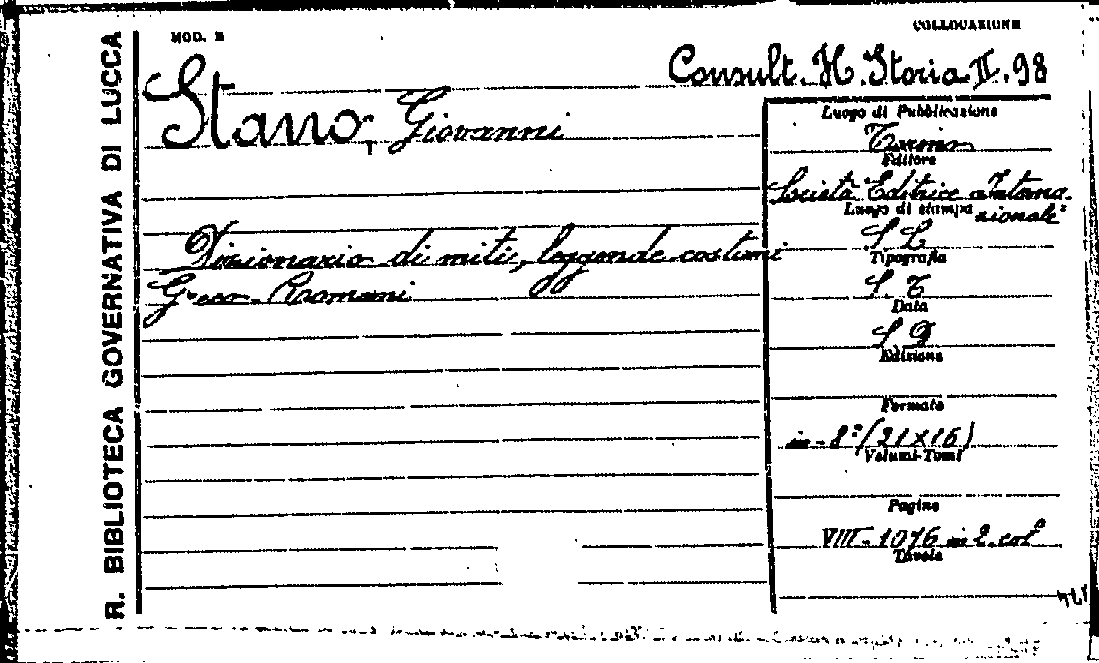 R. BIBLIOTECA GOVERNATIVA DI LUCCA
MOD. B
COLLOCAZIONE
Consult. H. Storia II. 98
Stano, Giovanni
Dizionario di miti, leggende costumi
Greco-Romani
Luogo di Pubblicazione
Torino
Editore
Società Editrice Interna-
zionale
Luogo di stampa
S L
Tipografia
S. T
Data
S D
Edizione
Formato
in-8º (21x16)
Volumi-Tomi
Pagine
VIII-1076 in 2 col
Tavole